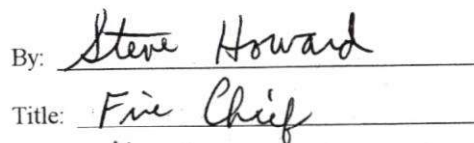 By: Steve Howard
Title: Fire Chief